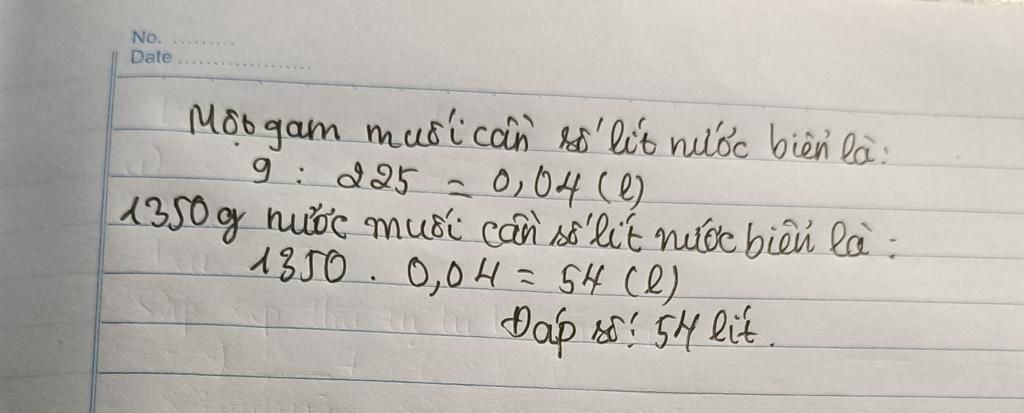 No. .........
Date ...................
Một gam muối cần số lít nước biển là:
9 : 225 = 0,04 (l)
1350g nước muối cần số lít nước biển là:
1350 . 0,04 = 54 (l)
Đáp số: 54 lít.